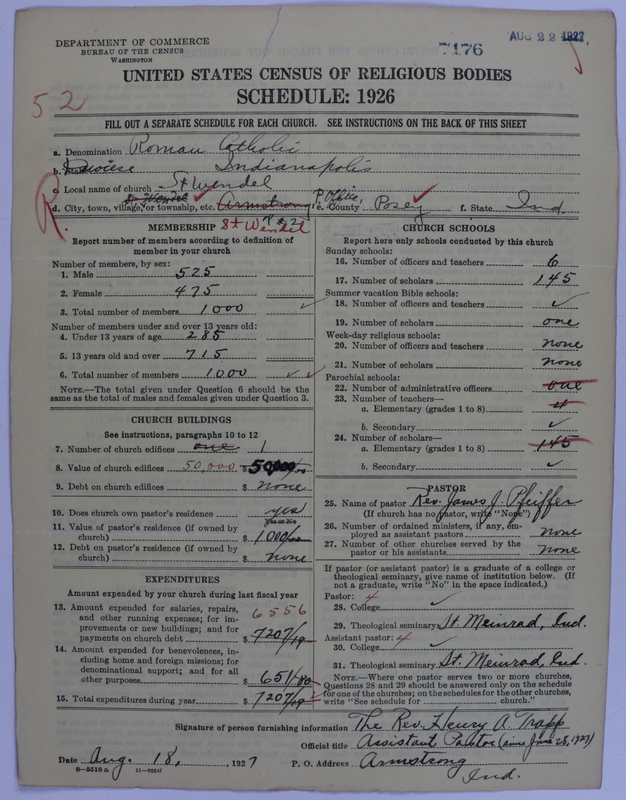 DEPARTMENT OF COMMERCE
BUREAU OF THE CENSUS
WASHINGTON
7176
AUG 22 1927
UNITED STATES CENSUS OF RELIGIOUS BODIES
SCHEDULE: 1926
52
FILL OUT A SEPARATE SCHEDULE FOR EACH CHURCH. SEE INSTRUCTIONS ON THE BACK OF THIS SHEET
a. Denomination Roman Catholic
b. Diocese Indianapolis
c. Local name of church St Wendel
R.
d. City, town, village, or township, etc. St Wendel Armstrong P. Office, e. County Posey f. State Ind
St Wendel R # 2
MEMBERSHIP
Report number of members according to definition of member in your church
Number of members, by sex:
1. Male 525
2. Female 475
3. Total number of members 1000
Number of members under and over 13 years old:
4. Under 13 years of age 285
5. 13 years old and over 715
6. Total number of members 1000
NOTE.—The total given under Question 6 should be the
same as the total of males and females given under Question 3.
CHURCH BUILDINGS
See instructions, paragraphs 10 to 12
7. Number of church edifices one 1
8. Value of church edifices 50,000 $ 50,000/00
9. Debt on church edifices $ none
10. Does church own pastor's residence yes
Yes or No
11. Value of pastor's residence (if owned by
church) $ 1000/00
12. Debt on pastor's residence (if owned by
church) $ none
EXPENDITURES
Amount expended by your church during last fiscal year
13. Amount expended for salaries, repairs,
and other running expenses; for im-
provements or new buildings; and for
payments on church debt $ 7207/19
6556
14. Amount expended for benevolences, in-
cluding home and foreign missions; for
denominational support; and for all
other purposes $ 651/80
15. Total expenditures during year $ 7207/19
CHURCH SCHOOLS
Report here only schools conducted by this church
Sunday schools:
16. Number of officers and teachers 6
17. Number of scholars 145
Summer vacation Bible schools:
18. Number of officers and teachers ✓
19. Number of scholars one
Week-day religious schools:
20. Number of officers and teachers none
21. Number of scholars none
Parochial schools:
22. Number of administrative officers one
23. Number of teachers—
a. Elementary (grades 1 to 8) 4
b. Secondary ✓
24. Number of scholars—
a. Elementary (grades 1 to 8) 145
b. Secondary ✓
PASTOR
25. Name of pastor Rev. James J. Pfeiffer
(If church has no pastor, write "None")
26. Number of ordained ministers, if any, em-
ployed as assistant pastors none
27. Number of other churches served by the
pastor or his assistants none
If pastor (or assistant pastor) is a graduate of a college or
theological seminary, give name of institution below. (If
not a graduate, write "No" in the space indicated.)
Pastor: 4
28. College ✓
29. Theological seminary St. Meinrad, Ind.
Assistant pastor: 4
30. College ✓
31. Theological seminary St. Meinrad, Ind.
NOTE.—Where one pastor serves two or more churches,
Questions 28 and 29 should be answered only on the schedule
for one of the churches; on the schedules for the other churches,
write "See schedule for church."
Signature of person furnishing information The Rev. Henry A. Trapp
Official title Assistant Pastor (since June 28, 1927)
Date Aug. 18, 1927 P. O. Address Armstrong
Ind.
8-5518 a